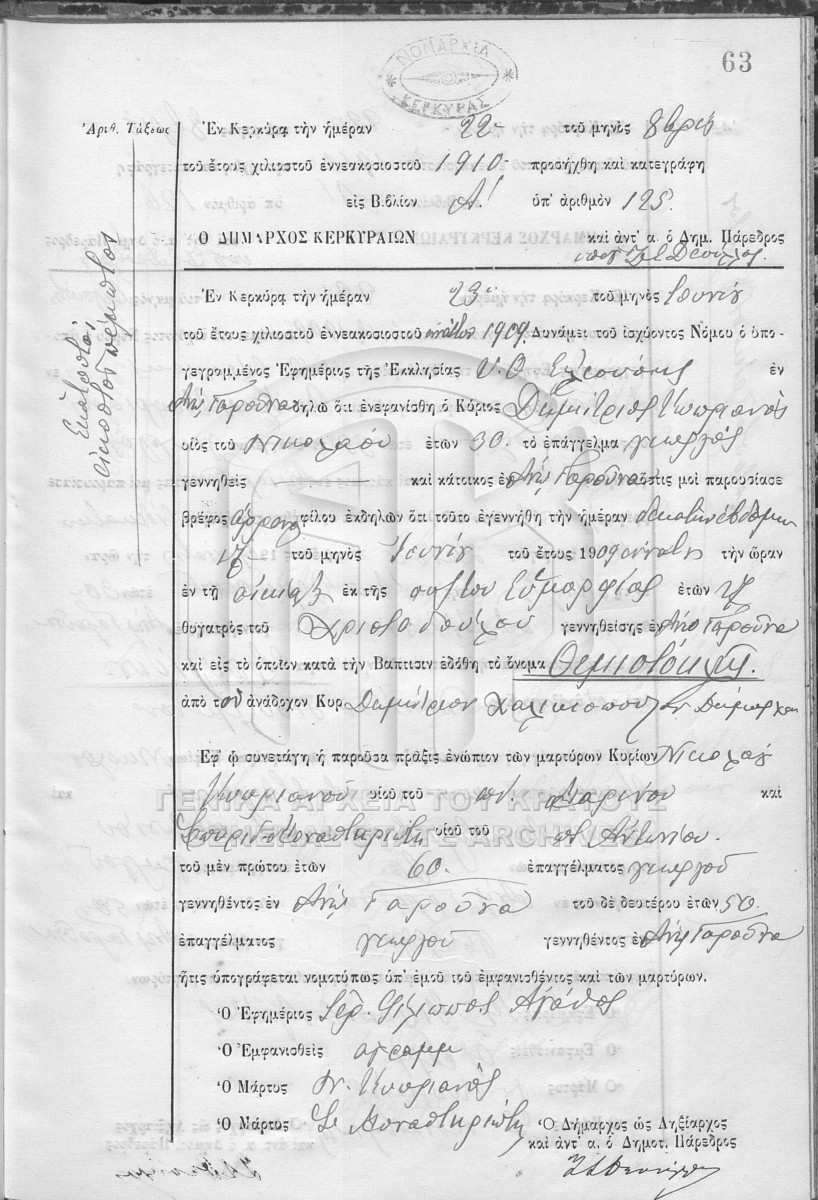 63
ΝΟΜΑΡΧΙΑ
ΚΕΡΚΥΡΑΣ
Ἀριθ. Τάξεως
Ἑκατοστὸν
εἰκοστὸν πέμπτον
Ἐν Κερκύρᾳ τὴν ἡμέραν 22 τοῦ μηνὸς 8βρίου
τοῦ ἔτους χιλιοστοῦ ἐννεακοσιοστοῦ 1910 προσήχθη καὶ κατεγράφη
εἰς Βιβλίον Α! ὑπ' ἀριθμὸν 125.
Ο ΔΗΜΑΡΧΟΣ ΚΕΡΚΥΡΑΙΩΝ καὶ ἀντ' α. ὁ Δημ. Πάρεδρος
Ἐν Κερκύρᾳ τὴν ἡμέραν 23 τοῦ μηνὸς Ἰουνίου
τοῦ ἔτους χιλιοστοῦ ἐννεακοσιοστοῦ ἐννάτου 1909 Δυνάμει τοῦ ἰσχύοντος Νόμου ὁ ὑπο-
γεγραμμένος Ἐφημέριος τῆς Ἐκκλησίας Υ. Θ. Ἐλεούσης ἐν
Ἄνω Γαρούνα δηλῶ ὅτι ἐνεφανίσθη ὁ Κύριος Δημήτριος Κυπριανὸς
υἱὸς τοῦ Νικολάου ἐτῶν 30. τὸ ἐπάγγελμα γεωργὸς
γεννηθεὶς καὶ κάτοικος ἐν Ἄνω Γαρούνα ὅστις μοὶ παρουσίασε
βρέφος ἄρρενος φίλου ἐκδηλῶν ὅτι τοῦτο ἐγεννήθη τὴν ἡμέραν δεκάτην ἑβδόμην
17 τοῦ μηνὸς Ἰουνίου τοῦ ἔτους 1909 τὴν ὥραν
ἐν τῇ οἰκίᾳ ἐκ τῆς συζύγου Εὐμορφίας ἐτῶν
θυγατρὸς τοῦ Χριστοδούλου γεννηθείσης ἐν Ἄνω Γαρούνα
καὶ εἰς τὸ ὁποῖον κατὰ τὴν Βάπτισιν ἐδόθη τὸ ὄνομα Θεμιστοκλῆς.
ἀπὸ τοῦ ἀνάδοχον Κυρ Δημήτριον Χαλικιόπουλον Δήμαρχον
Ἐφ ᾧ συνετάγη ἡ παροῦσα πρᾶξις ἐνώπιον τῶν μαρτύρων Κυρίων Νικολάου
Κυπριανοῦ υἱοῦ τοῦ ποτ. Μαρίνου καὶ
Σπυρίδ. Μοναστηριώτη υἱοῦ τοῦ ποτ Ἀντωνίου.
ΓΕΝΙΚΑ ΑΡΧΕΙΑ ΤΟΥ ΚΡΑΤΟΥΣ
GENERAL STATE ARCHIVES
τοῦ μὲν πρώτου ἐτῶν 60. ἐπαγγέλματος γεωργοῦ
γεννηθέντος ἐν Ἄνω Γαρούνα τοῦ δὲ δευτέρου ἐτῶν 50.
ἐπαγγέλματος γεωργοῦ γεννηθέντος ἐν Ἄνω Γαρούνα
ἥτις ὑπογράφεται νομοτύπως ὑπ' ἐμοῦ τοῦ ἐμφανισθέντος καὶ τῶν μαρτύρων.
Ὁ Ἐφημέριος Ἱερ. Φίλιππος Ἀγάθος
Ὁ Ἐμφανισθεὶς ἀγραμμ
Ὁ Μάρτυς Ν. Κυπριανὸς
Ὁ Μάρτυς Σ. Μοναστηριώτη Ὁ Δήμαρχος ὡς Ληξίαρχος
καὶ ἀντ' α. ὁ Δημοτ. Πάρεδρος